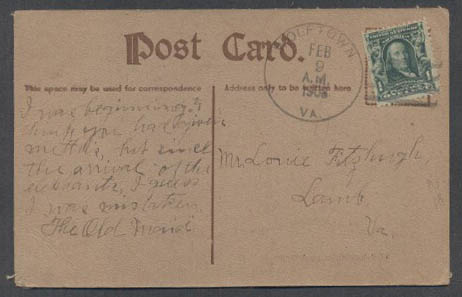 Post Card.
This space may be used for correspondence
Address only to be written here
DLETOWN
FEB
9
A.M.
VA.
1
I was beginning to
think you had given
me the, but since
the arrival of the
elephants, I guess
I was mistaken
The Old Maid
Mr. Louie Fitzhugh,
Lamb,
Va.